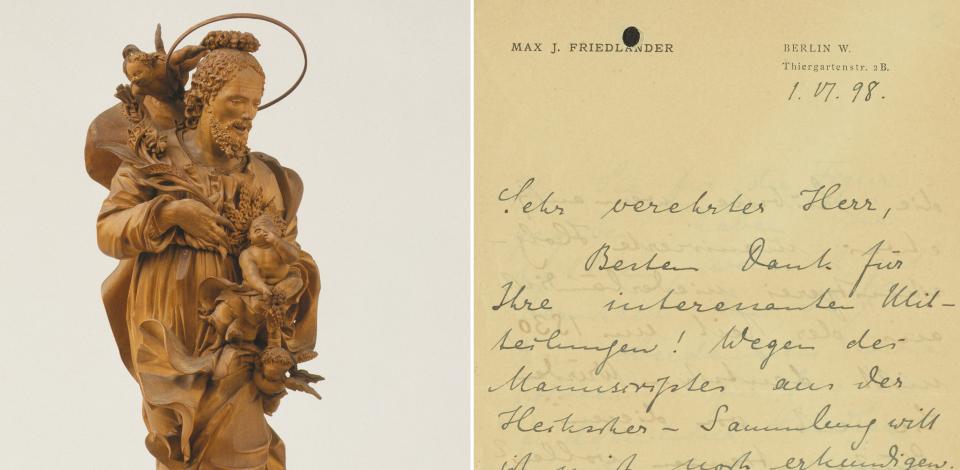 MAX J. FRIEDLÄNDER
BERLIN W.
Thiergartenstr. 2B.
1. VI. 98.
Sehr verehrter Herr,
Besten Dank für
Ihre interessanten Mit-
teilungen! Wegen des
Manuscriptes aus der
Sammlung will
ich mich noch erkundigen.